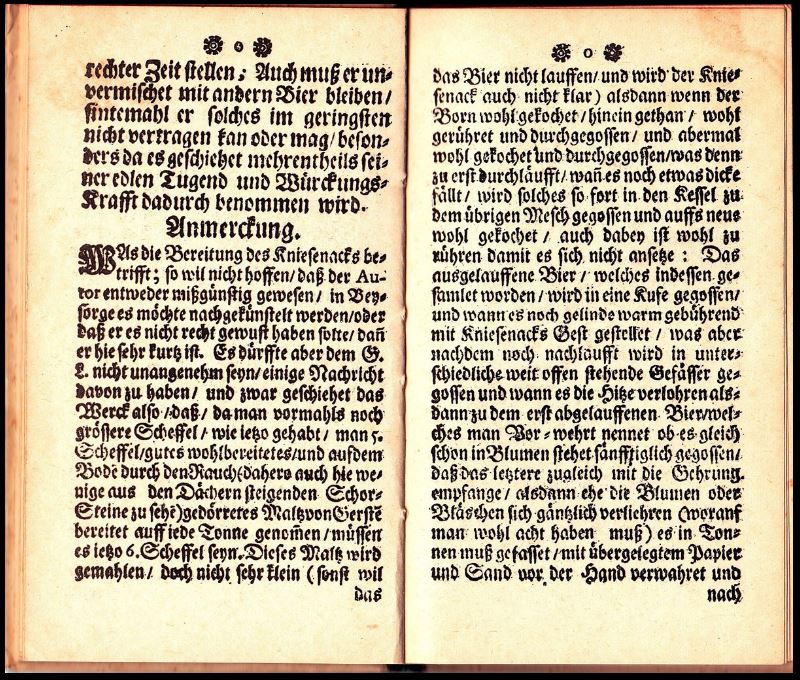 rechter Zeit stellen; Auch muß er un-
vermischet mit andern Bier bleiben/
sintemahl er solches im geringsten
nicht vertragen kan oder mag/ beson-
ders da es geschiehet mehrentheils sei-
ner edlen Tugend und Würckungs-
Krafft dadurch benommen wird.
Anmerckung.
WAs die Bereitung des Kniesenacks be-
trifft; so wil nicht hoffen/ daß der Au-
tor entweder mißgünstig gewesen/ in Bey-
sorge es möchte nachgekünstelt werden/oder
daß er es nicht recht gewust haben solte/ dañ
er hie sehr kurtz ist. Es dürffte aber dem G.
L. nicht unangenehm seyn/ einige Nachricht
davon zu haben/ und zwar geschiehet das
Werck also/ daß/ da man vormahls noch
grössere Scheffel/ wie ietzo gehabt/ man 5.
Scheffel/gutes wohlbereitetes/und auf dem
Bodē durch den Rauch (dahero auch hie we-
nige aus den Dächern steigenden Schor-
Steine zu sehē) gedörretes Maltz von Gerstē
bereitet auff iede Tonne genom̃en/ müssen
es ietzo 6. Scheffel seyn. Dieses Maltz wird
gemahlen/ doch nicht sehr klein (sonst wil
das
0
das Bier nicht lauffen/ und wird der Knie-
senack auch nicht klar) alsdann wenn der
Born wohl gekochet/ hinein gethan/ wohl
gerühret und durchgegossen/ und abermal
wohl gekochet und durchgegossen/was denn
zu erst durchläufft/ wañ es noch etwas dicke
fällt/ wird solches so fort in den Kessel zu
dem übrigen Mesch gegossen und auffs neue
wohl gekochet/ auch dabey ist wohl zu
rühren damit es sich nicht ansetze: Das
ausgelauffene Bier/ welches indessen ge-
samlet worden/ wird in eine Kufe gegossen/
und wann es noch gelinde warm gebührend
mit Kniesenacks Gest gestellet/ was aber
nachdem noch nachläufft wird in unter-
schiedliche weit offen stehende Gefässer ge-
gossen und wann es die Hitze verlohren als-
dann zu dem erst abgelauffenen Bier/wel-
ches man Vor-wehrt nennet ob es gleich
schon in Blumen stehet sänfftiglich gegossen/
daß das letztere zugleich mit die Gehrung
empfange/ alsdann ehe die Blumen oder
Bläschen sich gäntzlich verliehren (worauf
man wohl acht haben muß) es in Ton-
nen muß gefasset/ mit übergelegtem Papier
und Sand vor der Hand verwahret und
nach